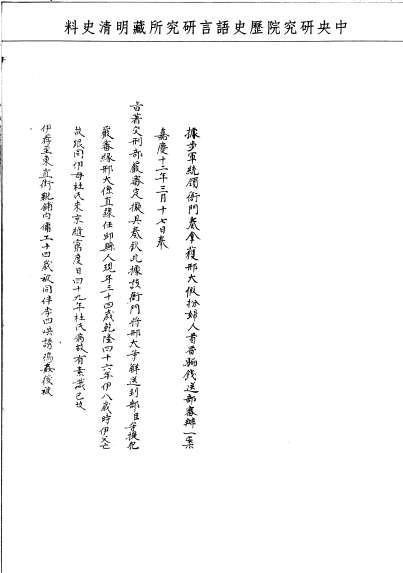 中央研究院歷史語言研究所藏明清史料
據步軍統領衙門奏拿獲邢大假扮婦人看香騙錢送部審辦一案
嘉慶十二年三月十七日奉
旨著交刑部嚴審定擬具奏欽此據該衙門將邢大等解送到部臣等提犯
嚴審緣邢大係直隸任邱縣人現年三十四歲乾隆四十六年伊八歲時伊父亡
故跟同伊母杜氏來京縫窮度日四十九年杜氏病故有素識已故
伊再至東直街靴鋪內傭工十四歲被同伴李四哄誘雞姦後被